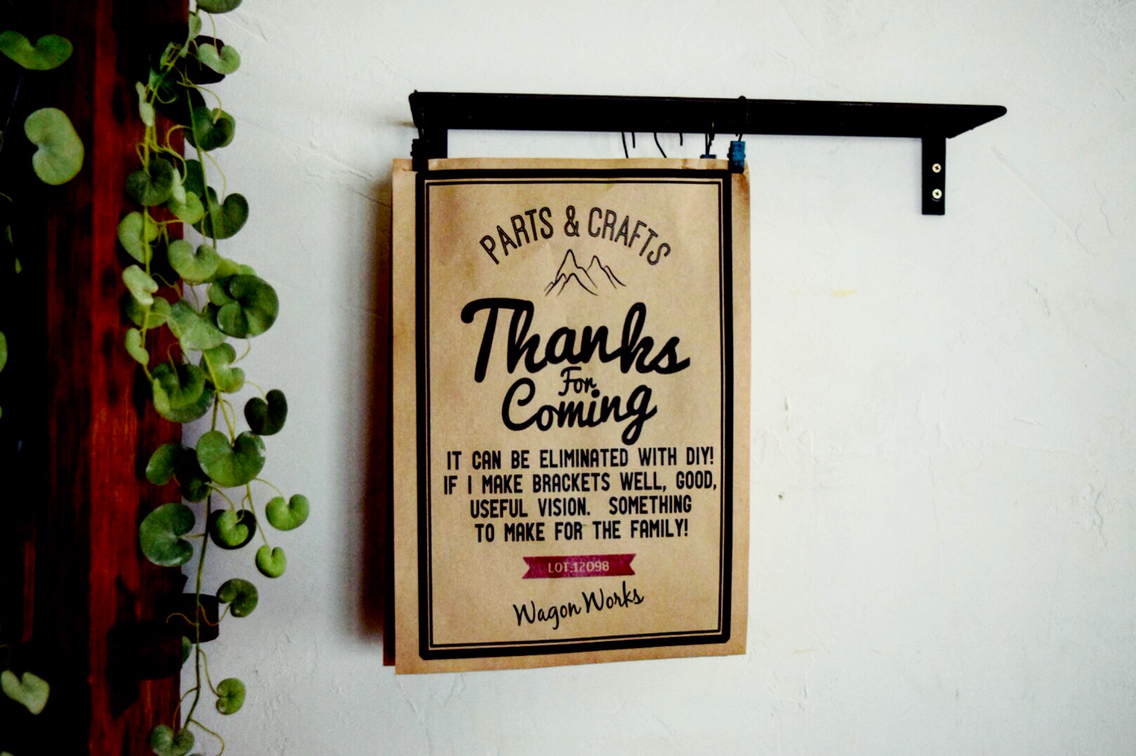 PARTS & CRAFTS
Thanks
For
Coming
IT CAN BE ELIMINATED WITH DIY!
IF I MAKE BRACKETS WELL, GOOD,
USEFUL VISION. SOMETHING
TO MAKE FOR THE FAMILY!
LOT.12098
Wagon Works